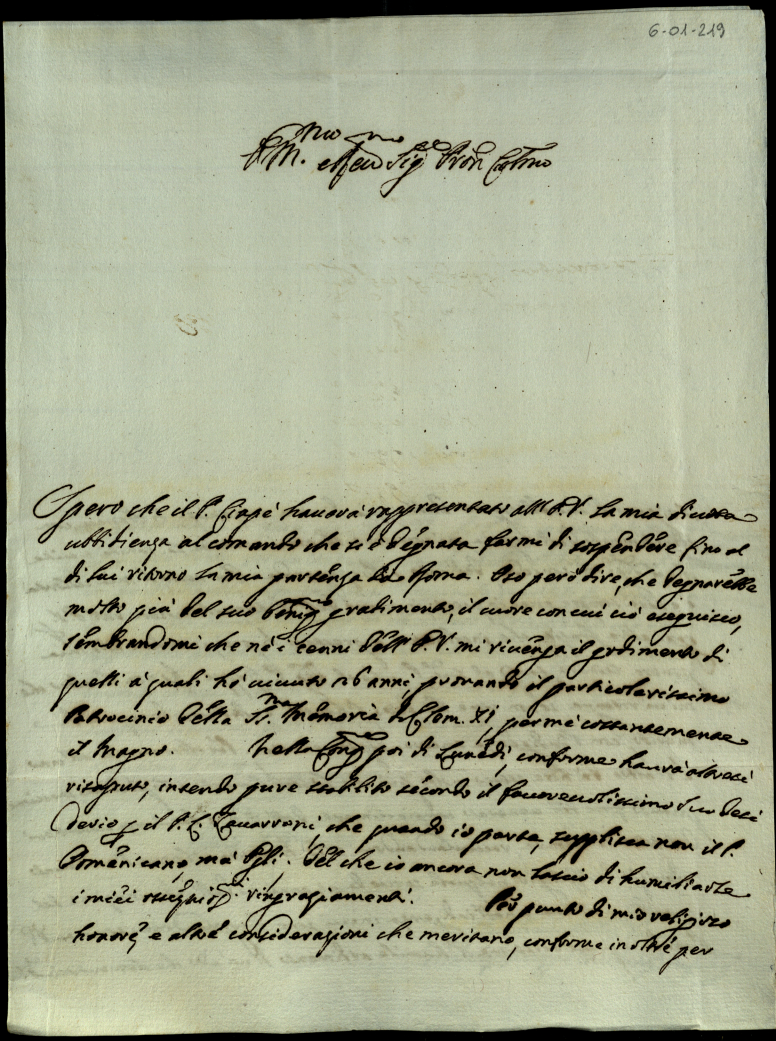 6-01-219
Sig.re Pron Col.mo
Spero che il P. haverà rappresentato all P.V. la mia divota
ubbidienza al comando che si è degnata farmi di sospendere fino al
di lui ritorno la mia partenza da Roma. Oso però dire, che degnarebbe
molto più del suo benig.mo gradimento, il cuore con cui ciò eseguisco,
sembrandomi che ne i cenni dell P.V. mi rivenga il godimento di
quelli à quali hò vivuto 26 anni, provando il particolarissimo
Patrocinio della St. Memoria di Clem. XI, per me costantemente
il Magno. Nella Cong.ne poi di Lunedì, conforme haurà altresì
risaputo, intendo pure stabilito secondo il favorevolissimo suo desi
derio p il P. L. Zavarroni, che quando io parta, supplisca non il P.
Domenicano, mà Egli. Del che io ancora non lascio di humiliarle
i miei ossequiosi ringraziamenti. Per punto di mio religioso
honore, e altre considerazioni che meritano, conforme inoltre per